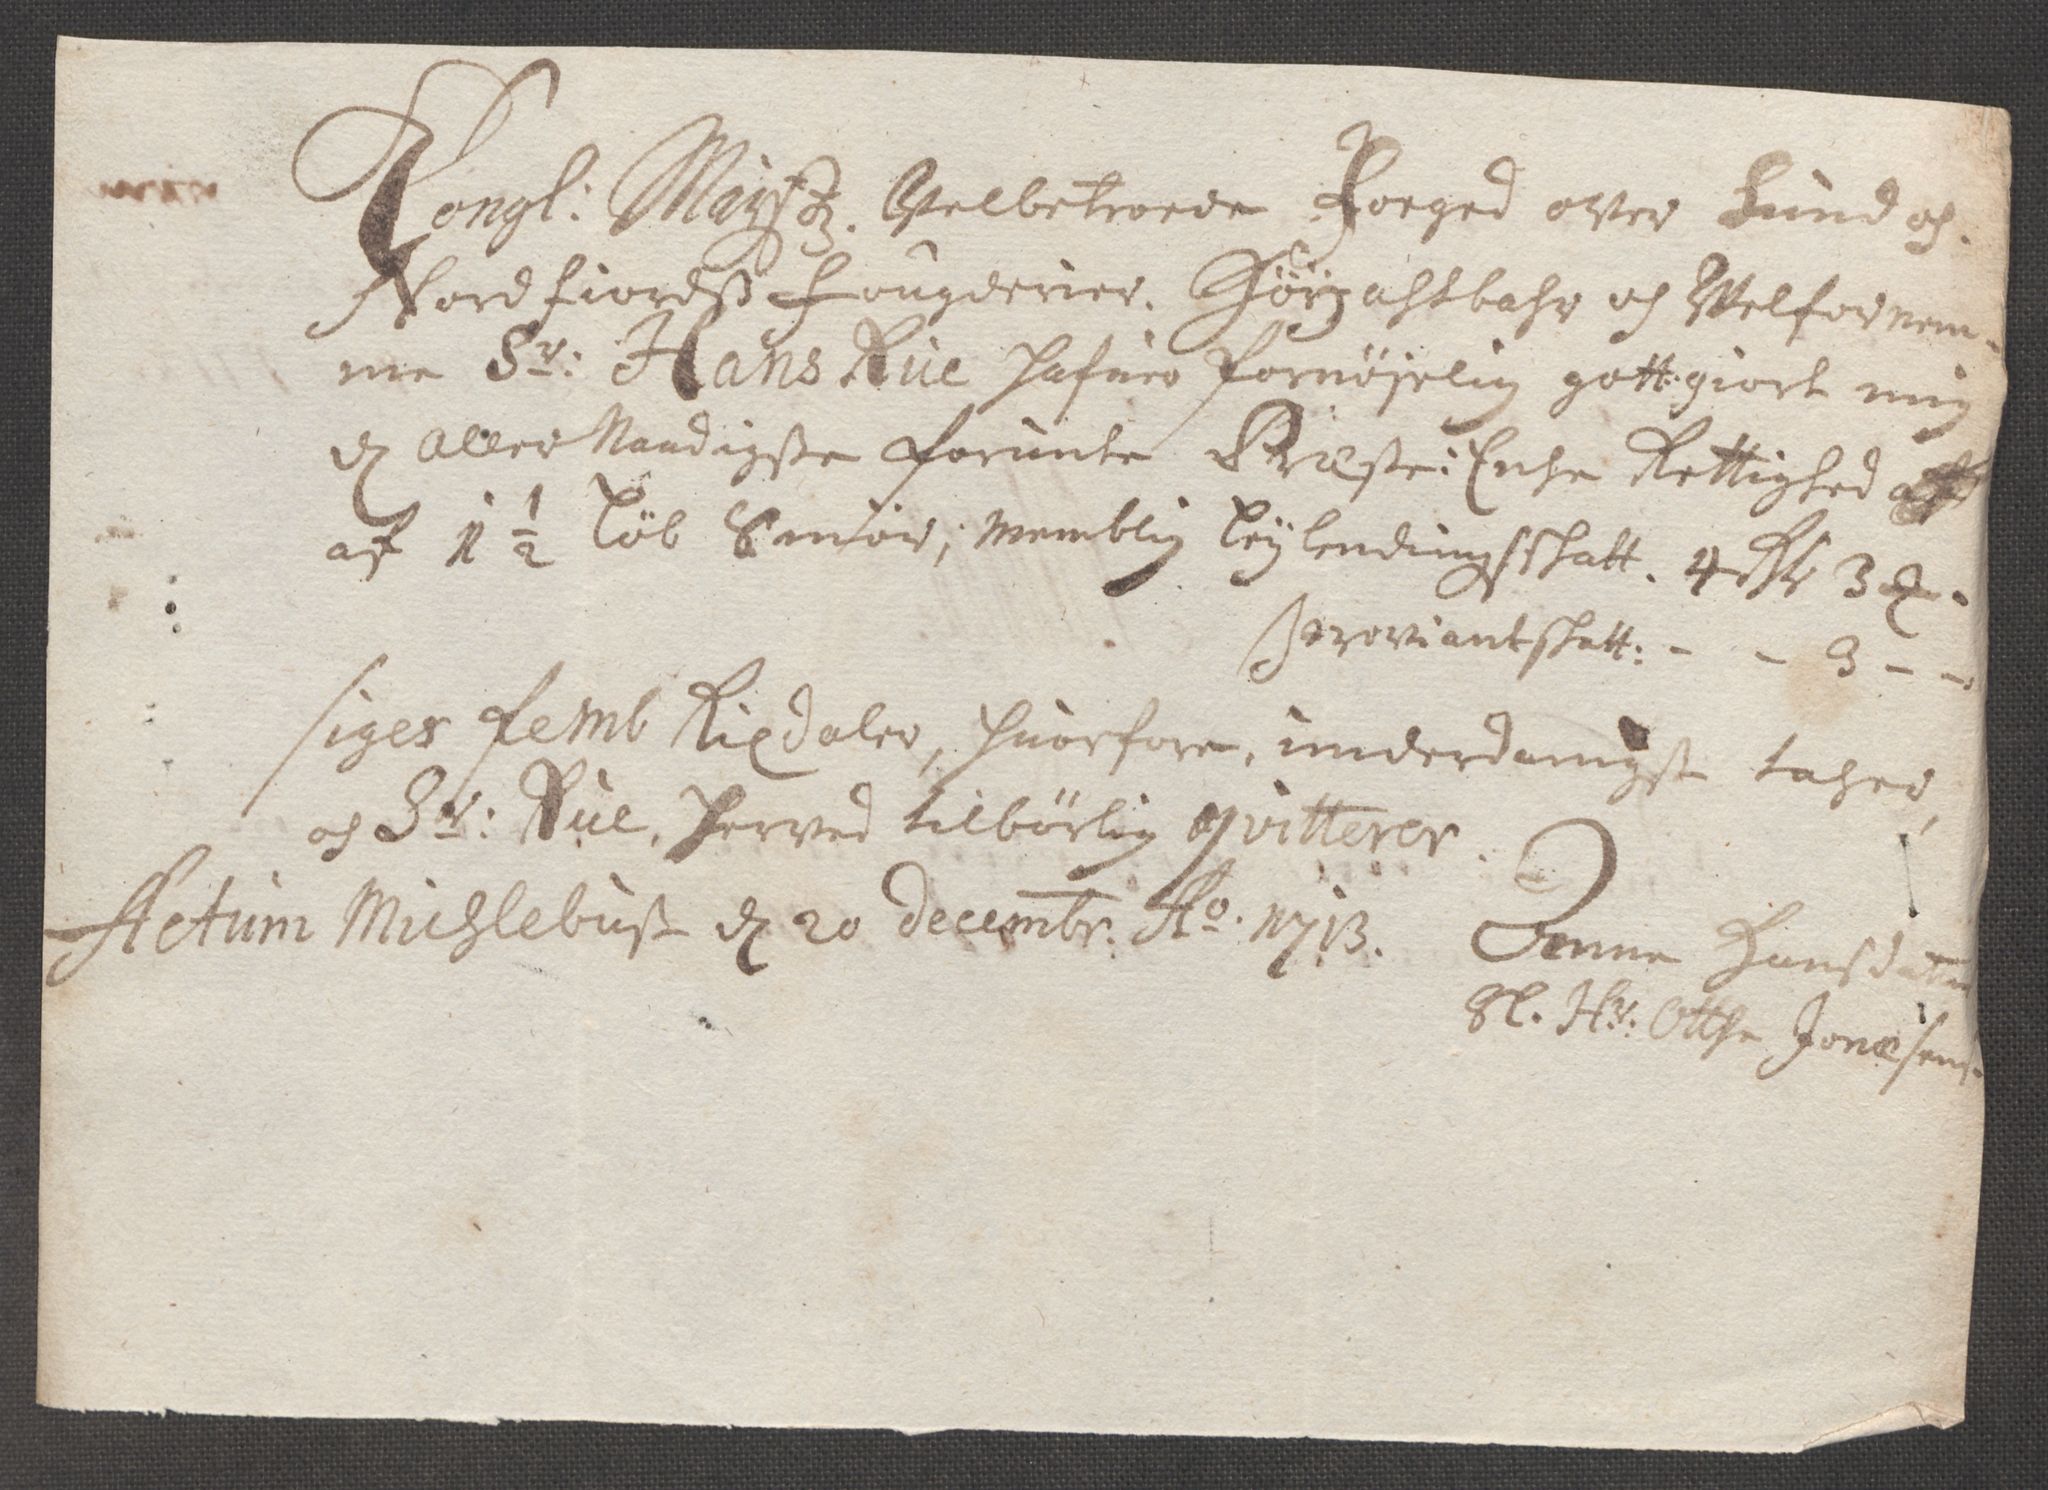 Kongl: Mayst&. Velbetroede Foeged over Sund og
Nordfiordß Fougderier. Höyachtbahr og Velfornem-
me Sr: Hans Rüe hafuer fornöyelig gott giort mig
d Aller Naadigste forunte Præste: Enche Rettighed
af 1 1/2 löb Smör, Nemblig Leylendingsschatt. 4 Rdr 3
Proviantschatt: - - 3 - -
siges femb Rixdaler, huorfore, underdanigst tacher,
og Sr: Rüe, herved tilbörlig qvitterer.
Actum Michlebust d 20 decembr: Ao. 1713. Anne Hansdatter
Sl. Hr: Otthe Jonæsens